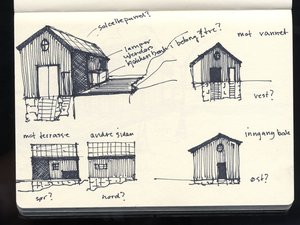 solcellepanel?
lamper
utendørs
i betong / tre?
mot vannet
vest?
mot terrasse
andre siden
inngang bak
sør?
nord?
øst?